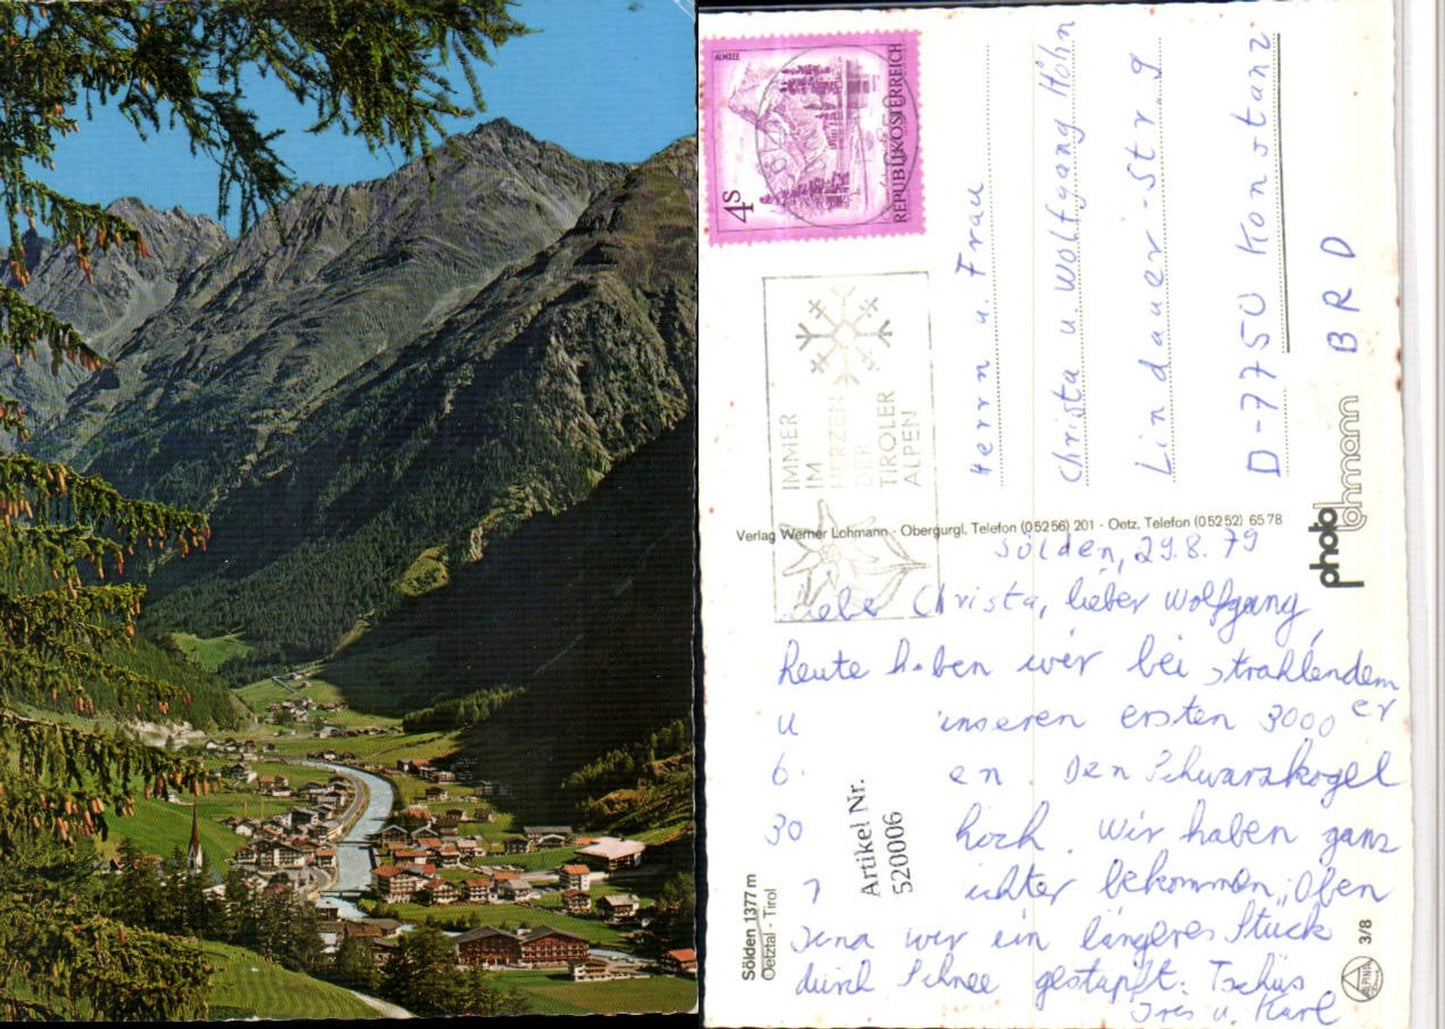 ALMSEE
4S
REPUBLIK ÖSTERREICH
IMMER
IM
HERZEN
DER
TIROLER
ALPEN
Herrn u. Frau
Christa u. Wolfgang Höhn
Lindauer-Str. 9
D-7750 Konstanz
BRD
Verlag Werner Lohmann · Obergurgl, Telefon (05256) 201 · Oetz, Telefon (05252) 6578
photo lohmann
Sölden, 29.8.79
Liebe Christa, lieber Wolfgang,
heute haben wir bei strahlendem
u unseren ersten 3000er
en. Den Schwarzkogel
30 hoch. Wir haben ganz
ichter bekommen, Oben
sind wir ein längeres Stück
durch Schnee gestapft. Tschüs
u. Karl
Artikel Nr.
520006
Sölden 1377 m
Oetztal - Tirol
3/8
ALPINA